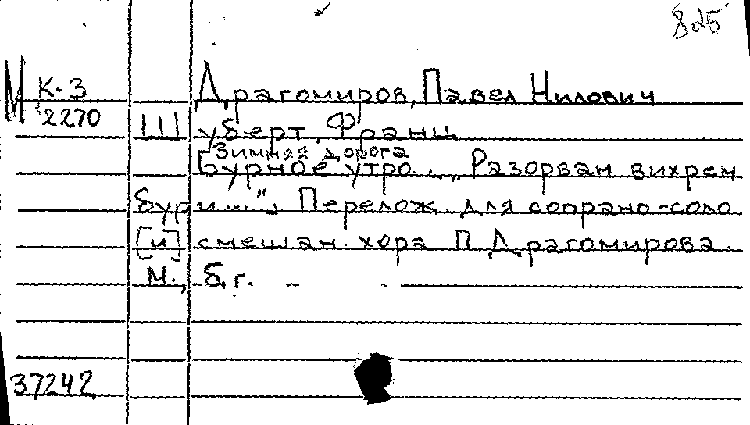 825
М К-3 Драгомиров, Павел Нилович
2270 Шуберт, Франц
Зимняя дорога
Бурное утро. „Разорван вихрем
бури..."; Перелож. для сопрано-соло
[и] смешан. хора П. Драгомирова.
М., б.г. –
37242